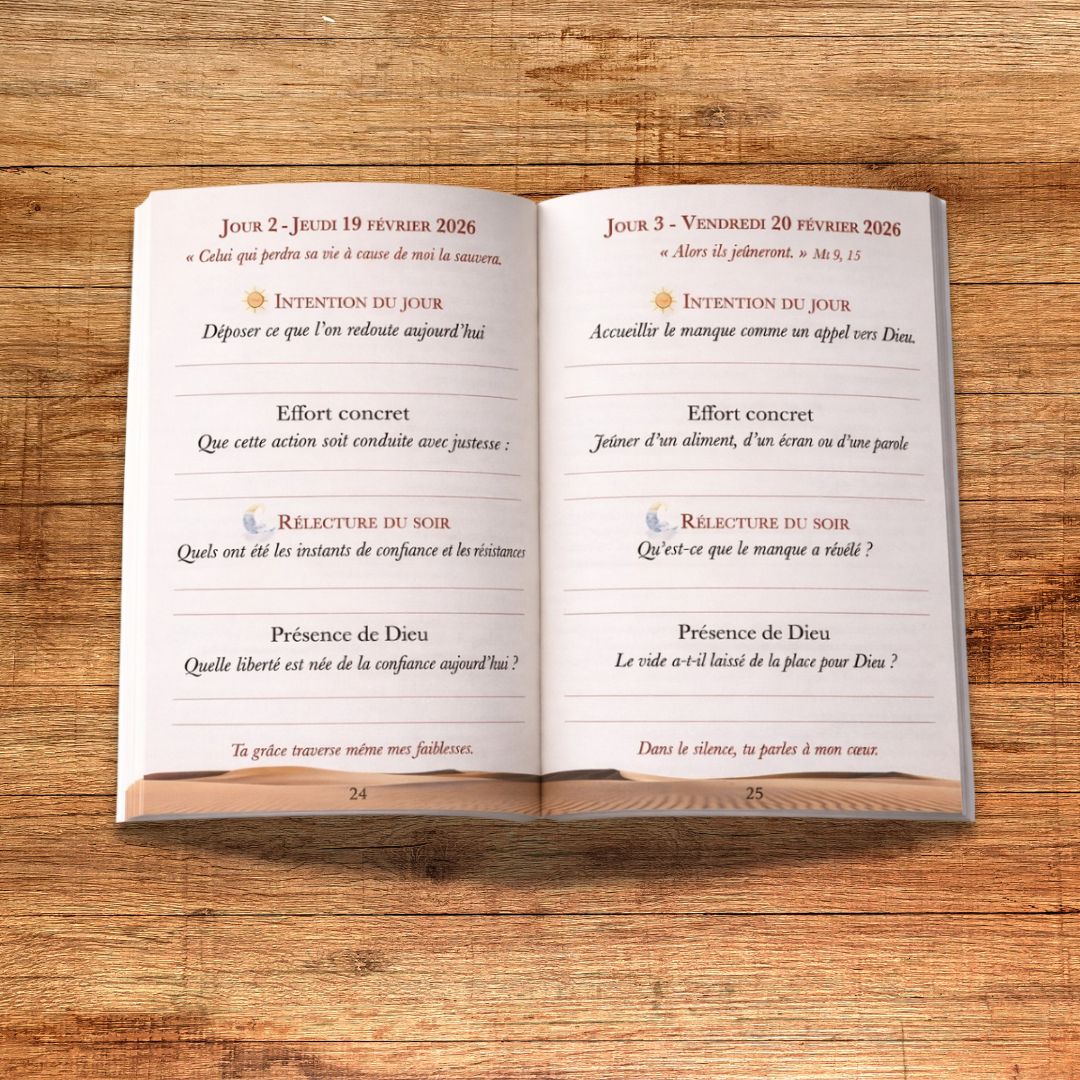 Jour 2 - Jeudi 19 février 2026
« Celui qui perdra sa vie à cause de moi la sauvera.
Intention du jour
Déposer ce que l'on redoute aujourd'hui
Effort concret
Que cette action soit conduite avec justesse :
Rélecture du soir
Quels ont été les instants de confiance et les résistances
Présence de Dieu
Quelle liberté est née de la confiance aujourd'hui ?
Ta grâce traverse même mes faiblesses.
24
Jour 3 - Vendredi 20 février 2026
« Alors ils jeûneront. » Mt 9, 15
Intention du jour
Accueillir le manque comme un appel vers Dieu.
Effort concret
Jeûner d'un aliment, d'un écran ou d'une parole
Rélecture du soir
Qu'est-ce que le manque a révélé ?
Présence de Dieu
Le vide a-t-il laissé de la place pour Dieu ?
Dans le silence, tu parles à mon cœur.
25